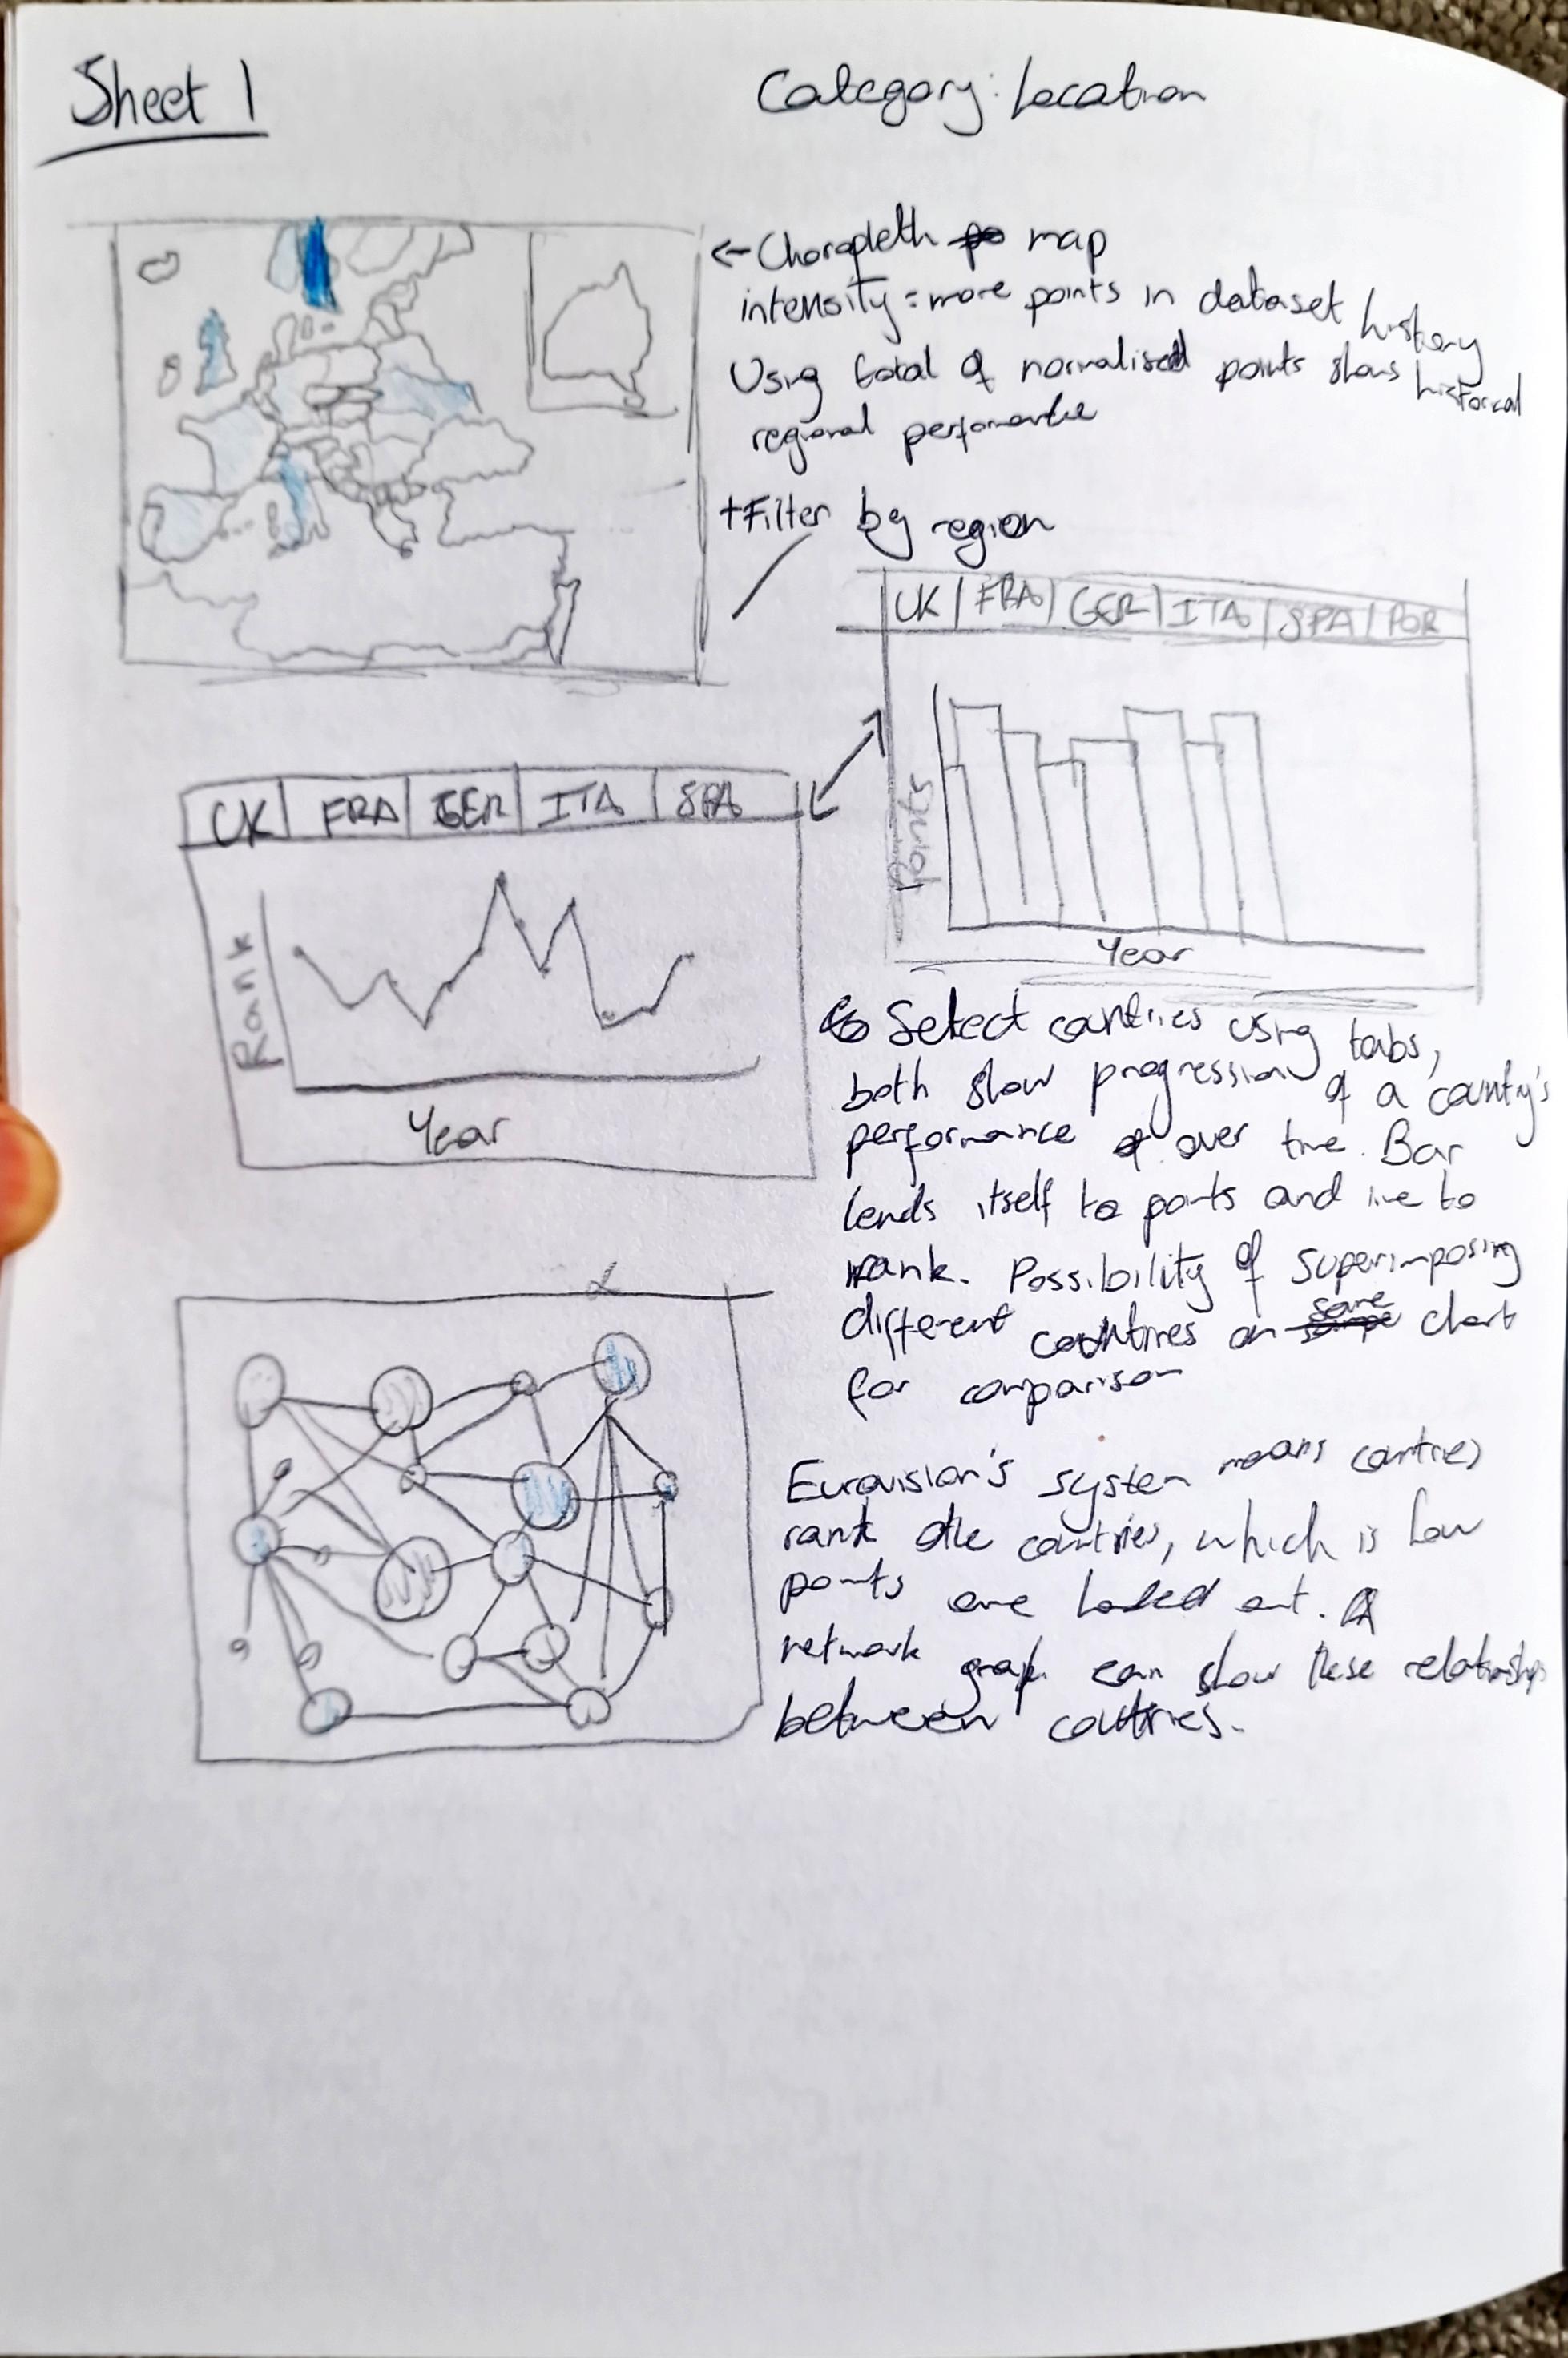 Sheet 1
Category: Location
← Choropleth map
intensity = more points in dataset history
Using total of normalised points shows historical
regional performance
+Filter by region
UK | FRA | GER | ITA | SPA | POR
Points
Year
UK | FRA | GER | ITA | SPA
Rank
Year
Select countries using tabs,
both show progression of a country's
performance over time. Bar
lends itself to points and line to
rank. Possibility of superimposing
different countires on same chart
for comparison
Eurovision's system means countries
rank other countries, which is how
points are handed out. A
network graph can show these relationships
between coutries.